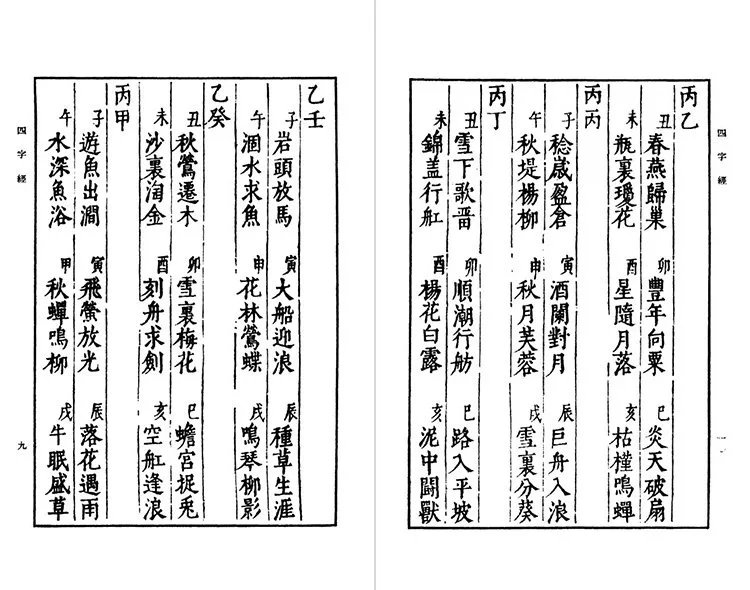 乙壬
子 岩頭放馬 寅 大船迎浪 辰 種草生涯
午 涸水求魚 申 花林鶯蝶 戌 鳴琴柳影
乙癸
丑 秋鶯遷木 卯 雪裏梅花 巳 蟾宮捉兎
未 沙裏淘金 酉 刻舟求劍 亥 空舡逢浪
丙甲
子 遊魚出澗 寅 飛螢放光 辰 落花遇雨
午 水深魚浴 甲 秋蟬鳴柳 戌 牛眠盛草
四字經
九
四字經
丙乙
丑 春燕歸巢 卯 豐年向粟 巳 炎天破扇
未 瓶裏瓊花 酉 星隨月落 亥 枯槿鳴蟬
丙丙
子 稔歲盈倉 寅 酒闌對月 辰 巨舟入浪
午 秋堤楊柳 申 秋月芙蓉 戌 雪裏分葵
丙丁
丑 雪下歌晋 卯 順潮行舫 巳 路入平坡
未 錦盖行舡 酉 楊花白露 亥 泥中鬪獸